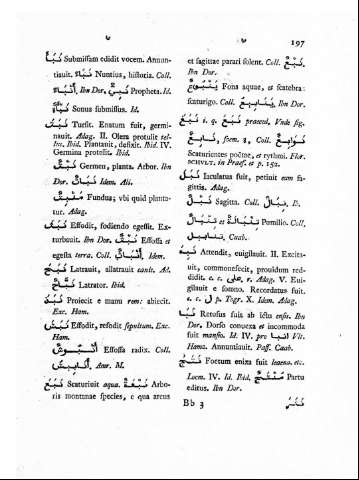 197
نَبَأَ Submissam edidit vocem. Annun-
tiavit. نَبَأٌ Nuntius, historia. Coll.
أَنْبَاءٌ. Ibn Dor. نَبِيٌّ Propheta. Id.
نَبْأَةٌ Sonus submissus. Id.
نَبَتَ Tursit. Enatum fuit, germi-
nauit. Adag. II. Olera protulit tel-
lus. Ibid. Plantauit, defixit. Ibid. IV.
Germina protulit. Ibid.
نَبْتٌ Germen, planta. Arbor. Ibn
Dor. نَبَاتٌ Idem. Ali.
مَنْبِتٌ Fundus; vbi quid planta-
tur. Adag.
نَبَثَ Effodit, fodiendo egessit. Ex-
turbauit. Ibn Dor. Effossa et
egesta terra. Coll. Idem.
نَبَحَ Latrauit, allatrauit canis. Ad.
نَبَّاحٌ Latrator. Ibid.
نَبَذَ Proiecit e manu rem: abiecit.
Exc. Ham.
نَبَشَ Effodit, refodit sepultum. Exc.
Ham.
Effossa radix. Coll.
Amr. M.
نَبَعَ Scaturiuit aqua. نَبْعَةٌ Arbo-
ris montanae species, e qua arcus
et sagittae parari solent. Coll. نَبْعٌ.
Ibn Dor.
يَنْبُوعٌ Fons aquae, et scatebra:
scaturigo. Coll. يَنَابِيعُ. Ibn Dor.
نَبَغَ i. q. نَبَعَ praeced. Vnde sig.
نَابِغٌ, foem. ة, Coll. نَوَابِغُ
Scaturientes poëtae, et rythmi. Flor.
in Praef. et p. 192.
نَبَلَ Iaculatus fuit, petiuit eum sa-
gittis. Adag.
نَبْلٌ Sagitta. Coll. نِبَالٌ. D.
تِنْبَالٌ et تِنْبَالَةٌ Pumilio. Coll.
تنابيل. Caab.
نَبِهَ Attendit, euigilauit. II. Excita-
uit, commonefecit, prouidum red-
didit. a. c. على, r. Adag. V. Eui-
gilauit e somno. Recordatus fuit.
c. c. ل p. Togr. X. Idem. Adag.
نَبَا Retusus fuit ab ictu ensis. Ibn
Dor. Dorso conuexa et incommoda
fuit mansio. Id. IV. pro انبأ Vit.
Hama. Annuntiauit. Pass. Caab.
نَتَجَ Foetum enixa fuit leaena. etc.
Locm. IV. Id. Ibid. مُنْتِجٌ Partu
editus. Ibn Dor.
Bb 3
نَثَرَ